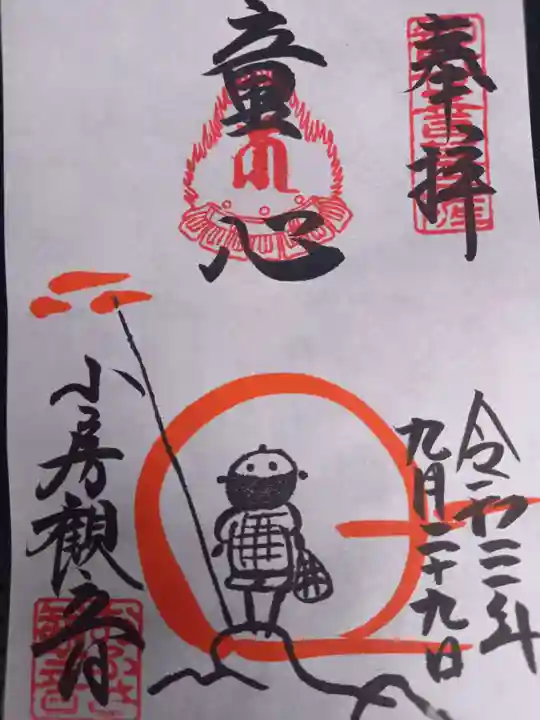 奉拝
童心
令和三年
九月二十九日
小房観音